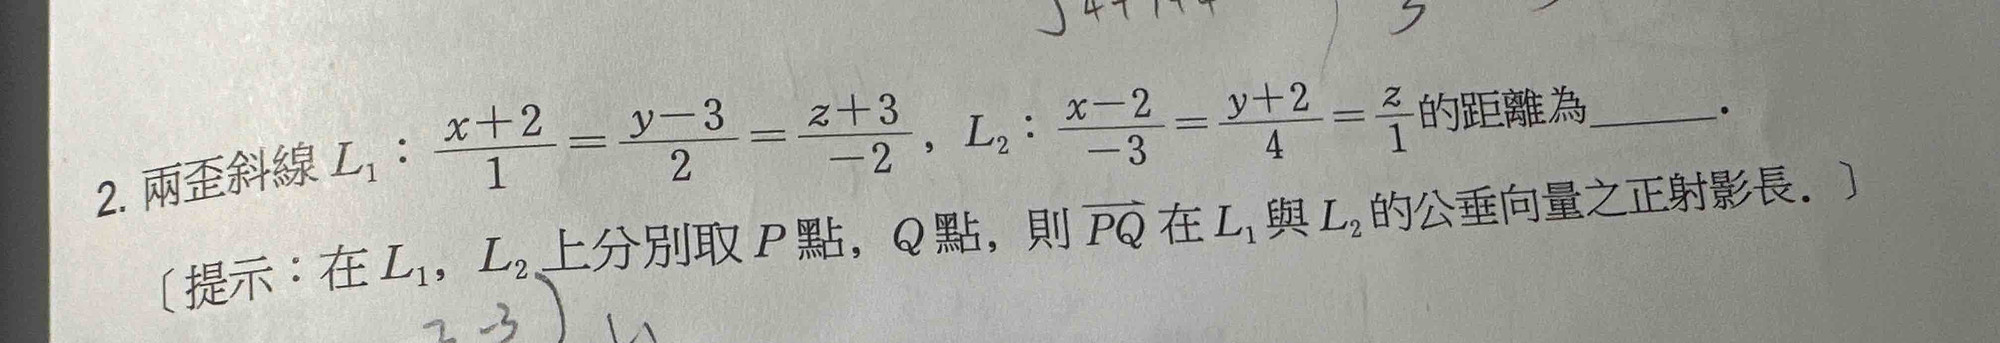 2. 兩歪斜線 L₁：(x+2)/1 = (y−3)/2 = (z+3)/−2，L₂：(x−2)/−3 = (y+2)/4 = z/1 的距離為______．
〔提示：在 L₁，L₂ 上分別取 P 點，Q 點，則 \overrightarrow{PQ} 在 L₁ 與 L₂ 的公垂向量之正射影長．〕